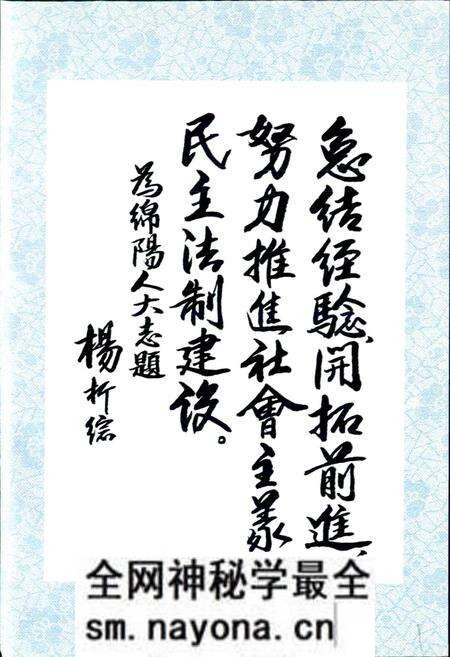 总结经驗、開拓前進、
努力推進社會主義
民主法制建设。
為綿陽人大志題
楊析综
全网神秘学最全
sm.nayona.cn